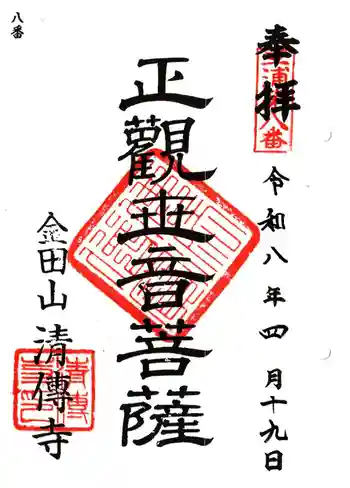 八番
奉拝
三浦 八番
令和八年四月十九日
正觀世音菩薩
金田山清傳寺
清傳